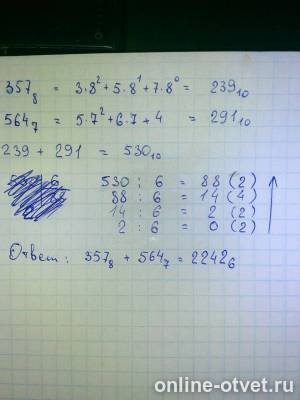 357₈ = 3·8² + 5·8¹ + 7·8⁰ = 239₁₀
564₇ = 5·7² + 6·7 + 4 = 291₁₀
239 + 291 = 530₁₀
530 : 6 = 88 (2)
88 : 6 = 14 (4)
14 : 6 = 2 (2)
2 : 6 = 0 (2)
Ответ: 357₈ + 564₇ = 2242₆
online-otvet.ru